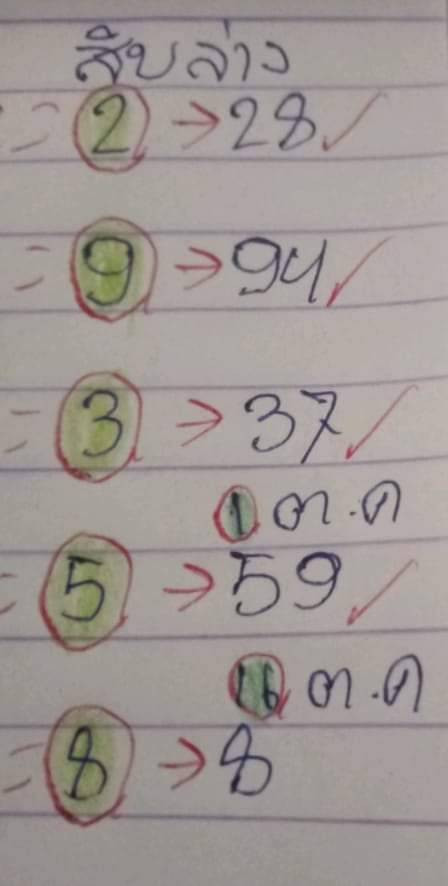 สิบล่าง
= 2 → 28 ✓
= 9 → 94 ✓
= 3 → 37 ✓
1 ต.ค
= 5 → 59 ✓
16 ต.ค
= 8 → 8